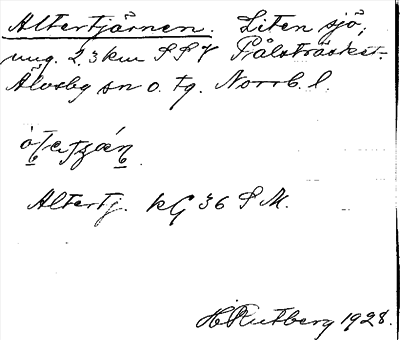 Altertjärnen. Liten sjö,
ung. 2,3 km SSV Pålsträsket.
Älvsby sn o. tg. Norrb. l.
Altertj. kG 36 S M.
H Rutberg 1928.